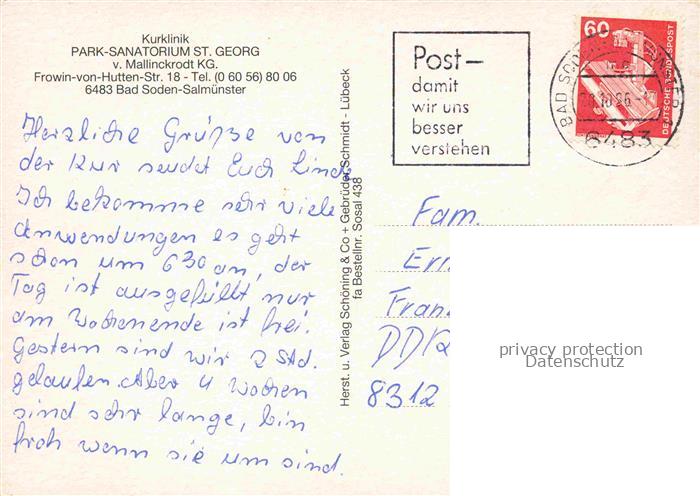 Kurklinik
PARK-SANATORIUM ST. GEORG
v. Mallinckrodt KG.
Frowin-von-Hutten-Str. 18 - Tel. (0 60 56) 80 06
6483 Bad Soden-Salmünster
Herzliche Grüße von
der Kur sendet Euch Linda
Ich bekomme sehr viele
Anwendungen es geht
schon um 6 30 an, der
Tag ist ausgefüllt nur
am Wochenende ist frei.
Gestern sind wir 2 Std.
gelaufen. Aber 4 Wochen
sind sehr lange, bin
froh wenn sie um sind.
Herst. u. Verlag Schöning & Co + Gebrüder Schmidt - Lübeck
fa Bestellnr. Sosal 438
Post-
damit
wir uns
besser
verstehen
60
DEUTSCHE BUNDESPOST
BAD SODEN
6483
Fam.
Fran
DDR
8312
privacy protection
Datenschutz